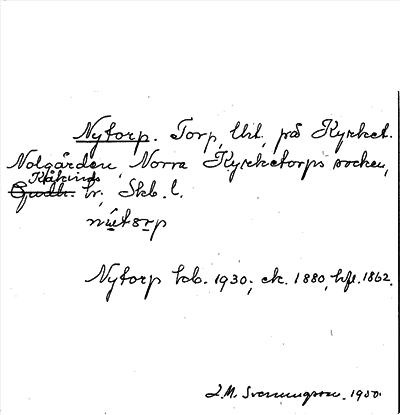 Nytorp. Torp, Utt. på Kyrket.
Nolgården, Norra Kyrketorps socken,
Kåkinds
Gudh. hr; Skb. l.
nŷtårp
Nytorp kab. 1930; ek. 1880, hfl. 1862.
J.M. Svenungsson. 1950.